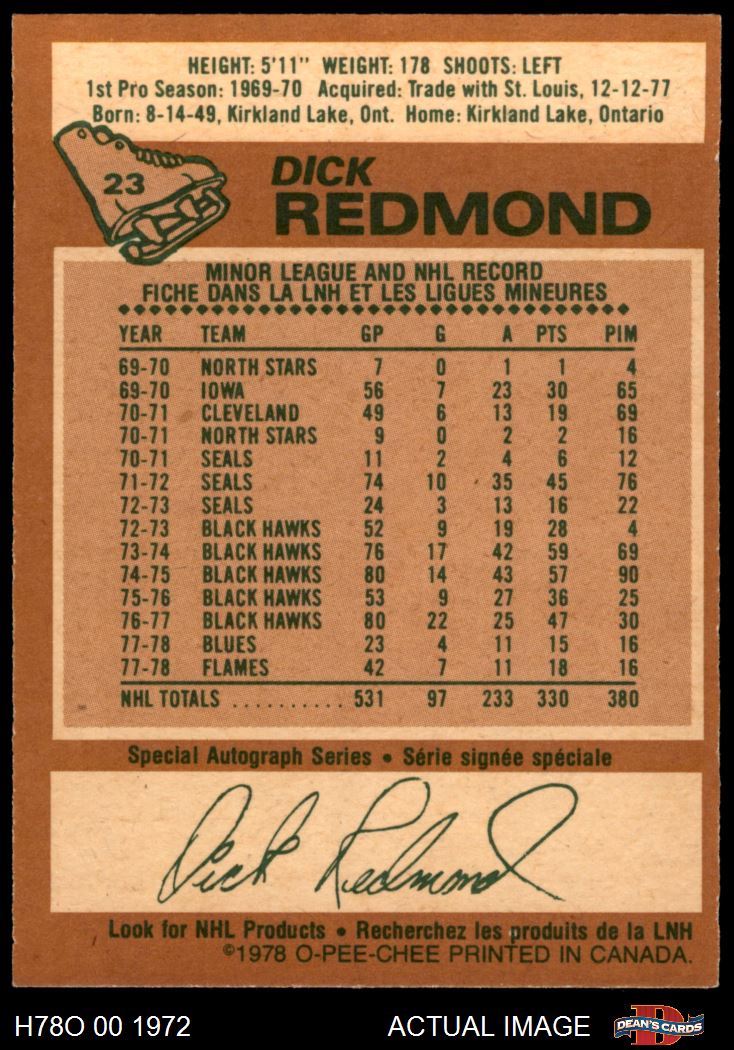 HEIGHT: 5'11" WEIGHT: 178 SHOOTS: LEFT
1st Pro Season: 1969-70 Acquired: Trade with St. Louis, 12-12-77
Born: 8-14-49, Kirkland Lake, Ont. Home: Kirkland Lake, Ontario
23
DICK
REDMOND
MINOR LEAGUE AND NHL RECORD
FICHE DANS LA LNH ET LES LIGUES MINEURES
YEAR TEAM GP G A PTS PIM
69-70 NORTH STARS 7 0 1 1 4
69-70 IOWA 56 7 23 30 65
70-71 CLEVELAND 49 6 13 19 69
70-71 NORTH STARS 9 0 2 2 16
70-71 SEALS 11 2 4 6 12
71-72 SEALS 74 10 35 45 76
72-73 SEALS 24 3 13 16 22
72-73 BLACK HAWKS 52 9 19 28 4
73-74 BLACK HAWKS 76 17 42 59 69
74-75 BLACK HAWKS 80 14 43 57 90
75-76 BLACK HAWKS 53 9 27 36 25
76-77 BLACK HAWKS 80 22 25 47 30
77-78 BLUES 23 4 11 15 16
77-78 FLAMES 42 7 11 18 16
NHL TOTALS .......... 531 97 233 330 380
Special Autograph Series • Série signée spéciale
Dick Redmond
Look for NHL Products • Recherchez les produits de la LNH
©1978 O-PEE-CHEE PRINTED IN CANADA.
H78O 00 1972 ACTUAL IMAGE D DEAN'S CARDS